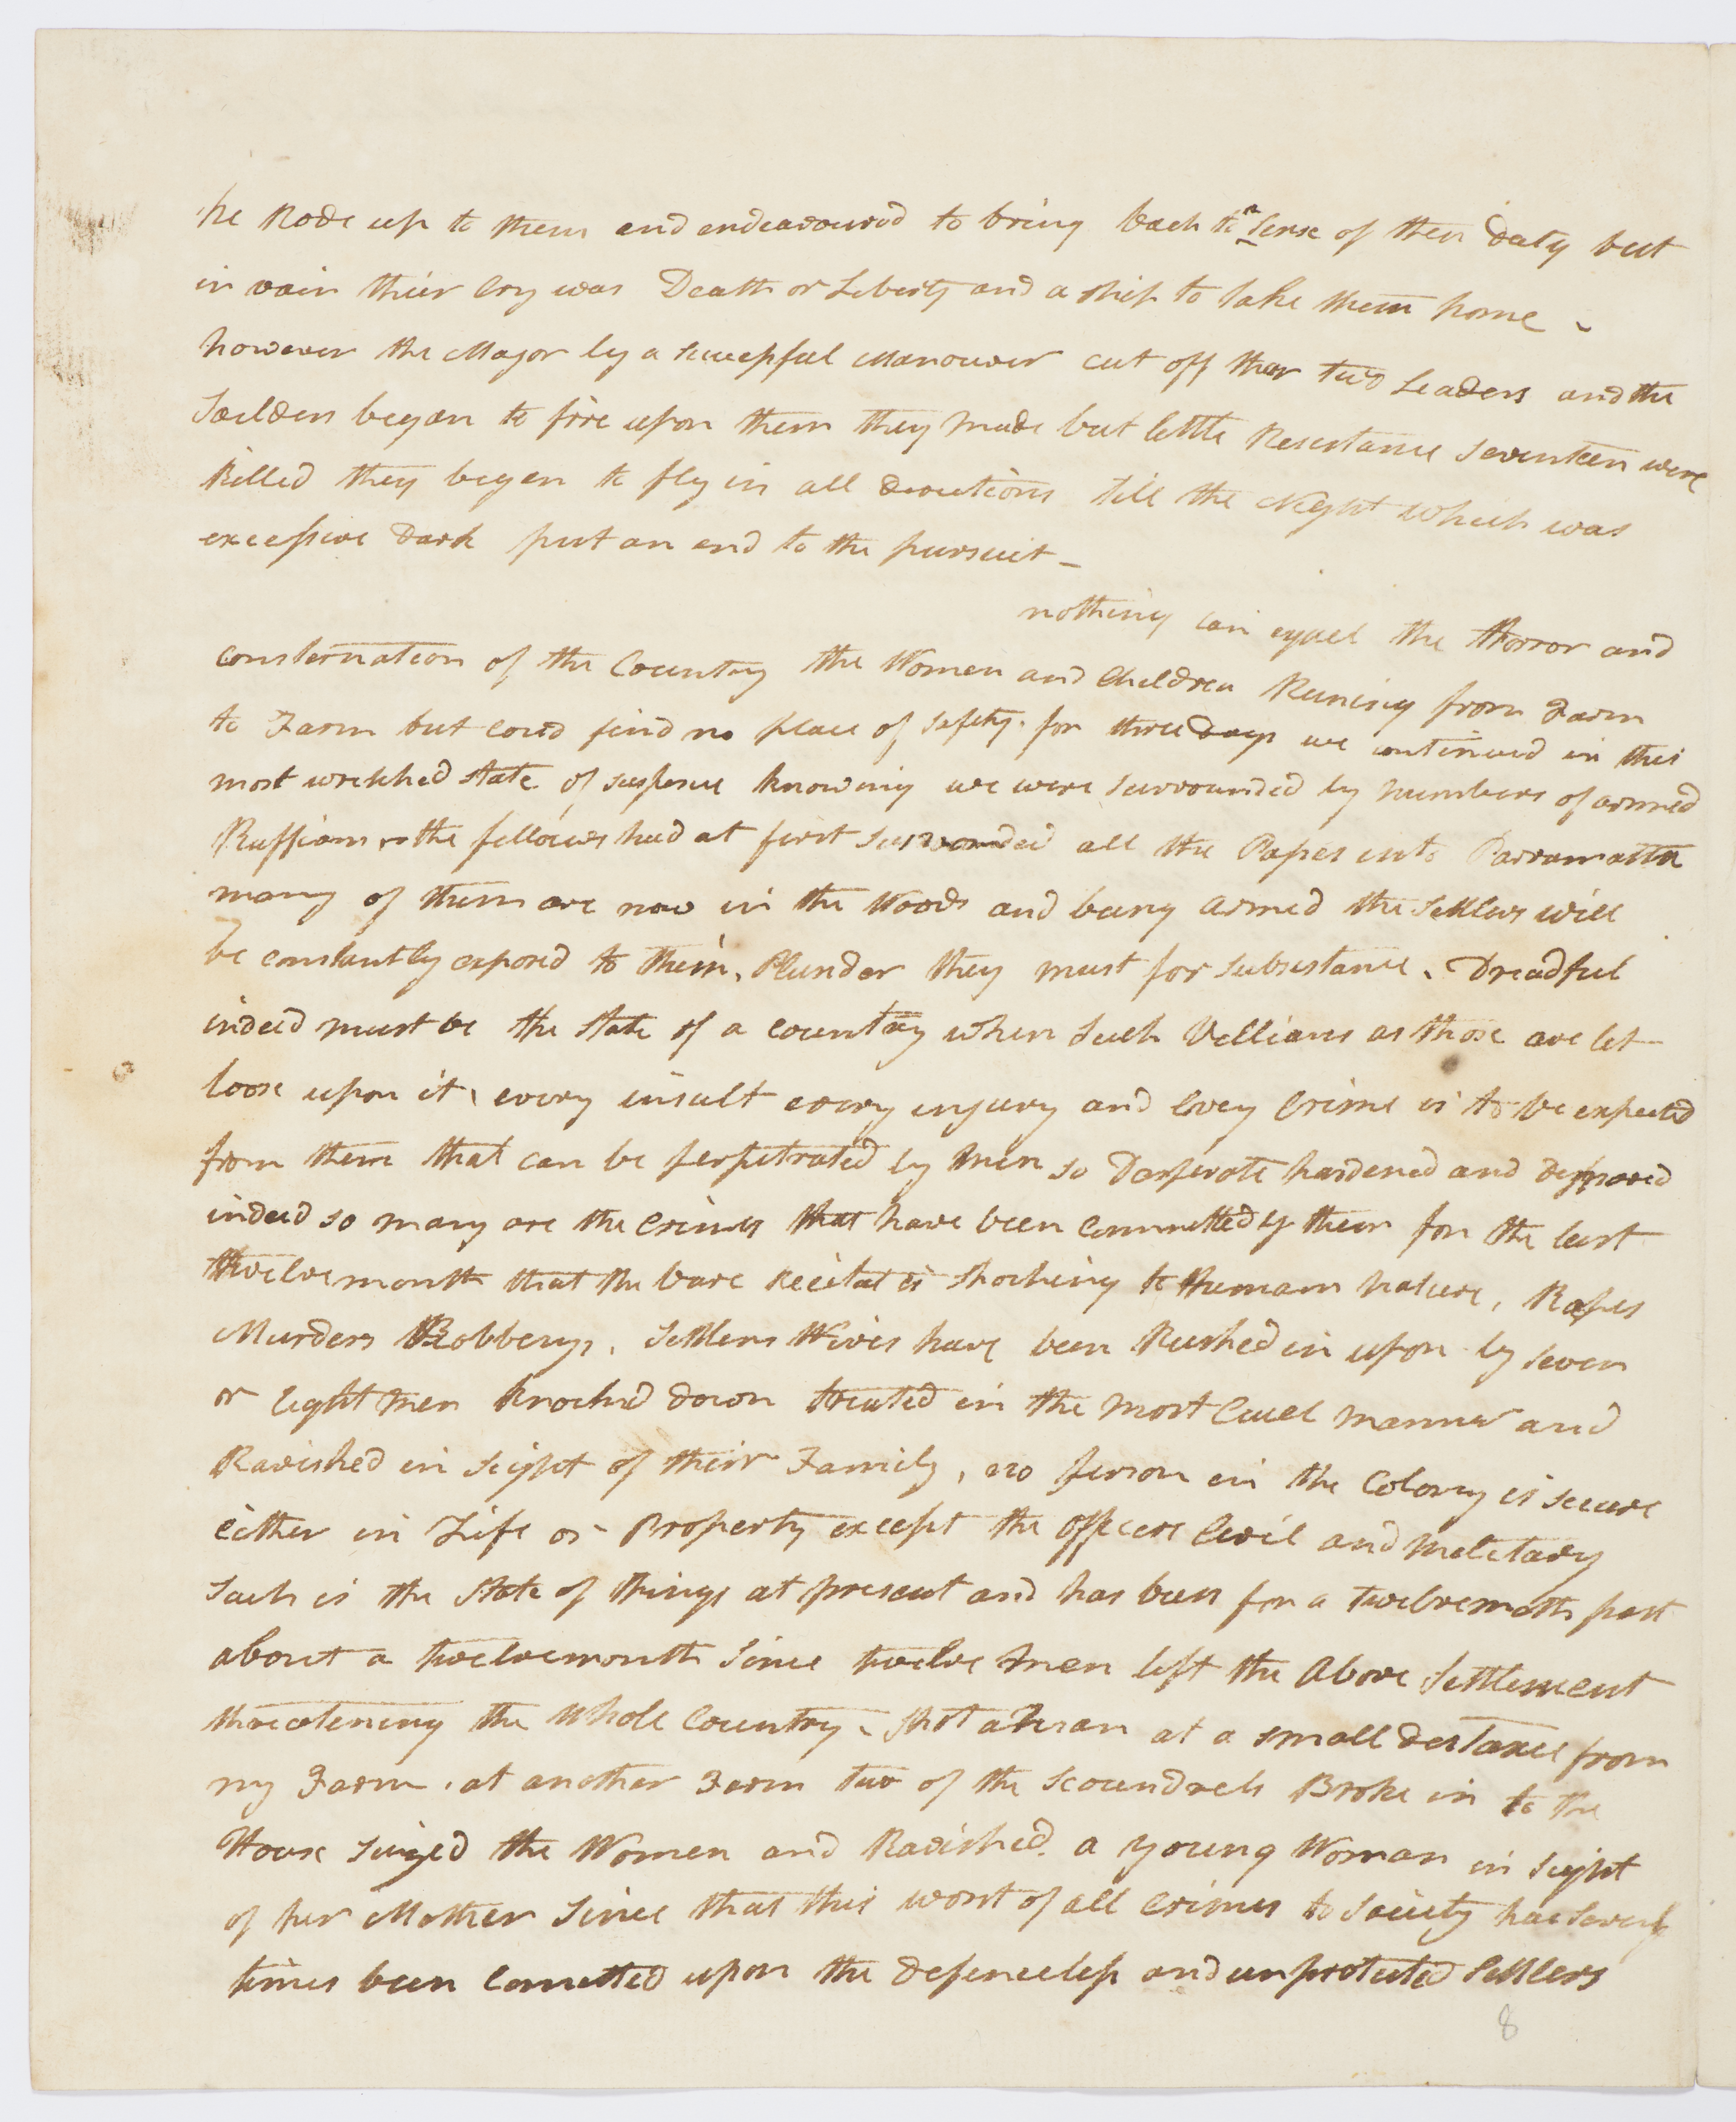 he Rode up to them and endeavoured to bring back to a Sense of their Duty but
in vain their Cry was Death or Liberty and a ship to take them home –
however the Major by a succesful Manouver cut off ther two Leaders and the
Soilders began to fire upon them they made but little Resistance Seventeen were
killed they began to fly in all directions till the Night which was
excessive Dark put an end to the pursuit –
nothing can equel the Horror and
consternation of the Country the Women and Children Runing from Farm
to Farm but coud find no place of safety. for three Days we continued in this
most wretched state of suspence knowing we were surrounded by numbers of armed
Ruffians the fellows had at first surrounded all the Passes into Parramatta
many of them are now in the Woods and being armed the Settlers will
be constantly exposed to them, Plunder they must for subsistance. Dreadful
indeed must be the state of a country when such Villians as those are let
loose upon it, every insult every injury and every Crime is to be expected
from them that can be perpetrated by men so Desperate hardened and depraved
indeed so many are the crimes that have been committed by them for the last
twelvemonth that the bare recital is shocking to Humam nature, Rapes
Murders Robberys, Settlers Wives have been Rushed in upon by seven
or eight men knocked down treated in the most cruel manner and
Ravished in sight of their Family, no person in the Colony is secure
either in Life or Property except the officers Civil and Military
Such is the state of things at present and has been for a twelvemoth past
about a twelvemonth since twelve men left the above Settlement
threatening the whole Country, shot a man at a small distance from
my Farm, at another Farm two of the scoundrels Broke in to the
House seized the Women and Ravished a young Woman in sight
of her Mother since that this worst of all crimes to Society has several
times been comitted upon the defenceless and unprotected Settlers
8